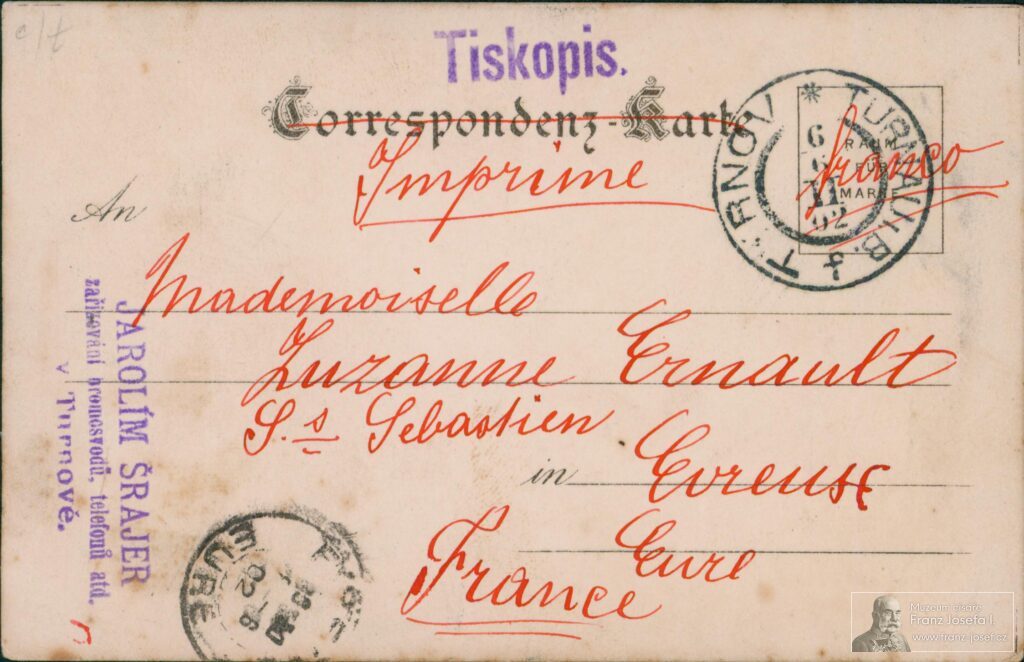 c/t
Tiskopis.
Correspondenz-Karte
Imprime
TURNAU i. B. * TURNOV
6
6
VI
02
RAUM
FÜR
MARKE
franco
An
Mademoiselle
Zuzanne Ernault
S.s Sebastien
in Evreux
Eure
France
JAROLÍM ŠRAJER
zařizování hromosvodů, telefonů atd.
v Turnově.
EURE
02
Muzeum císaře
Franz Josefa I.
www.franz-josef.cz